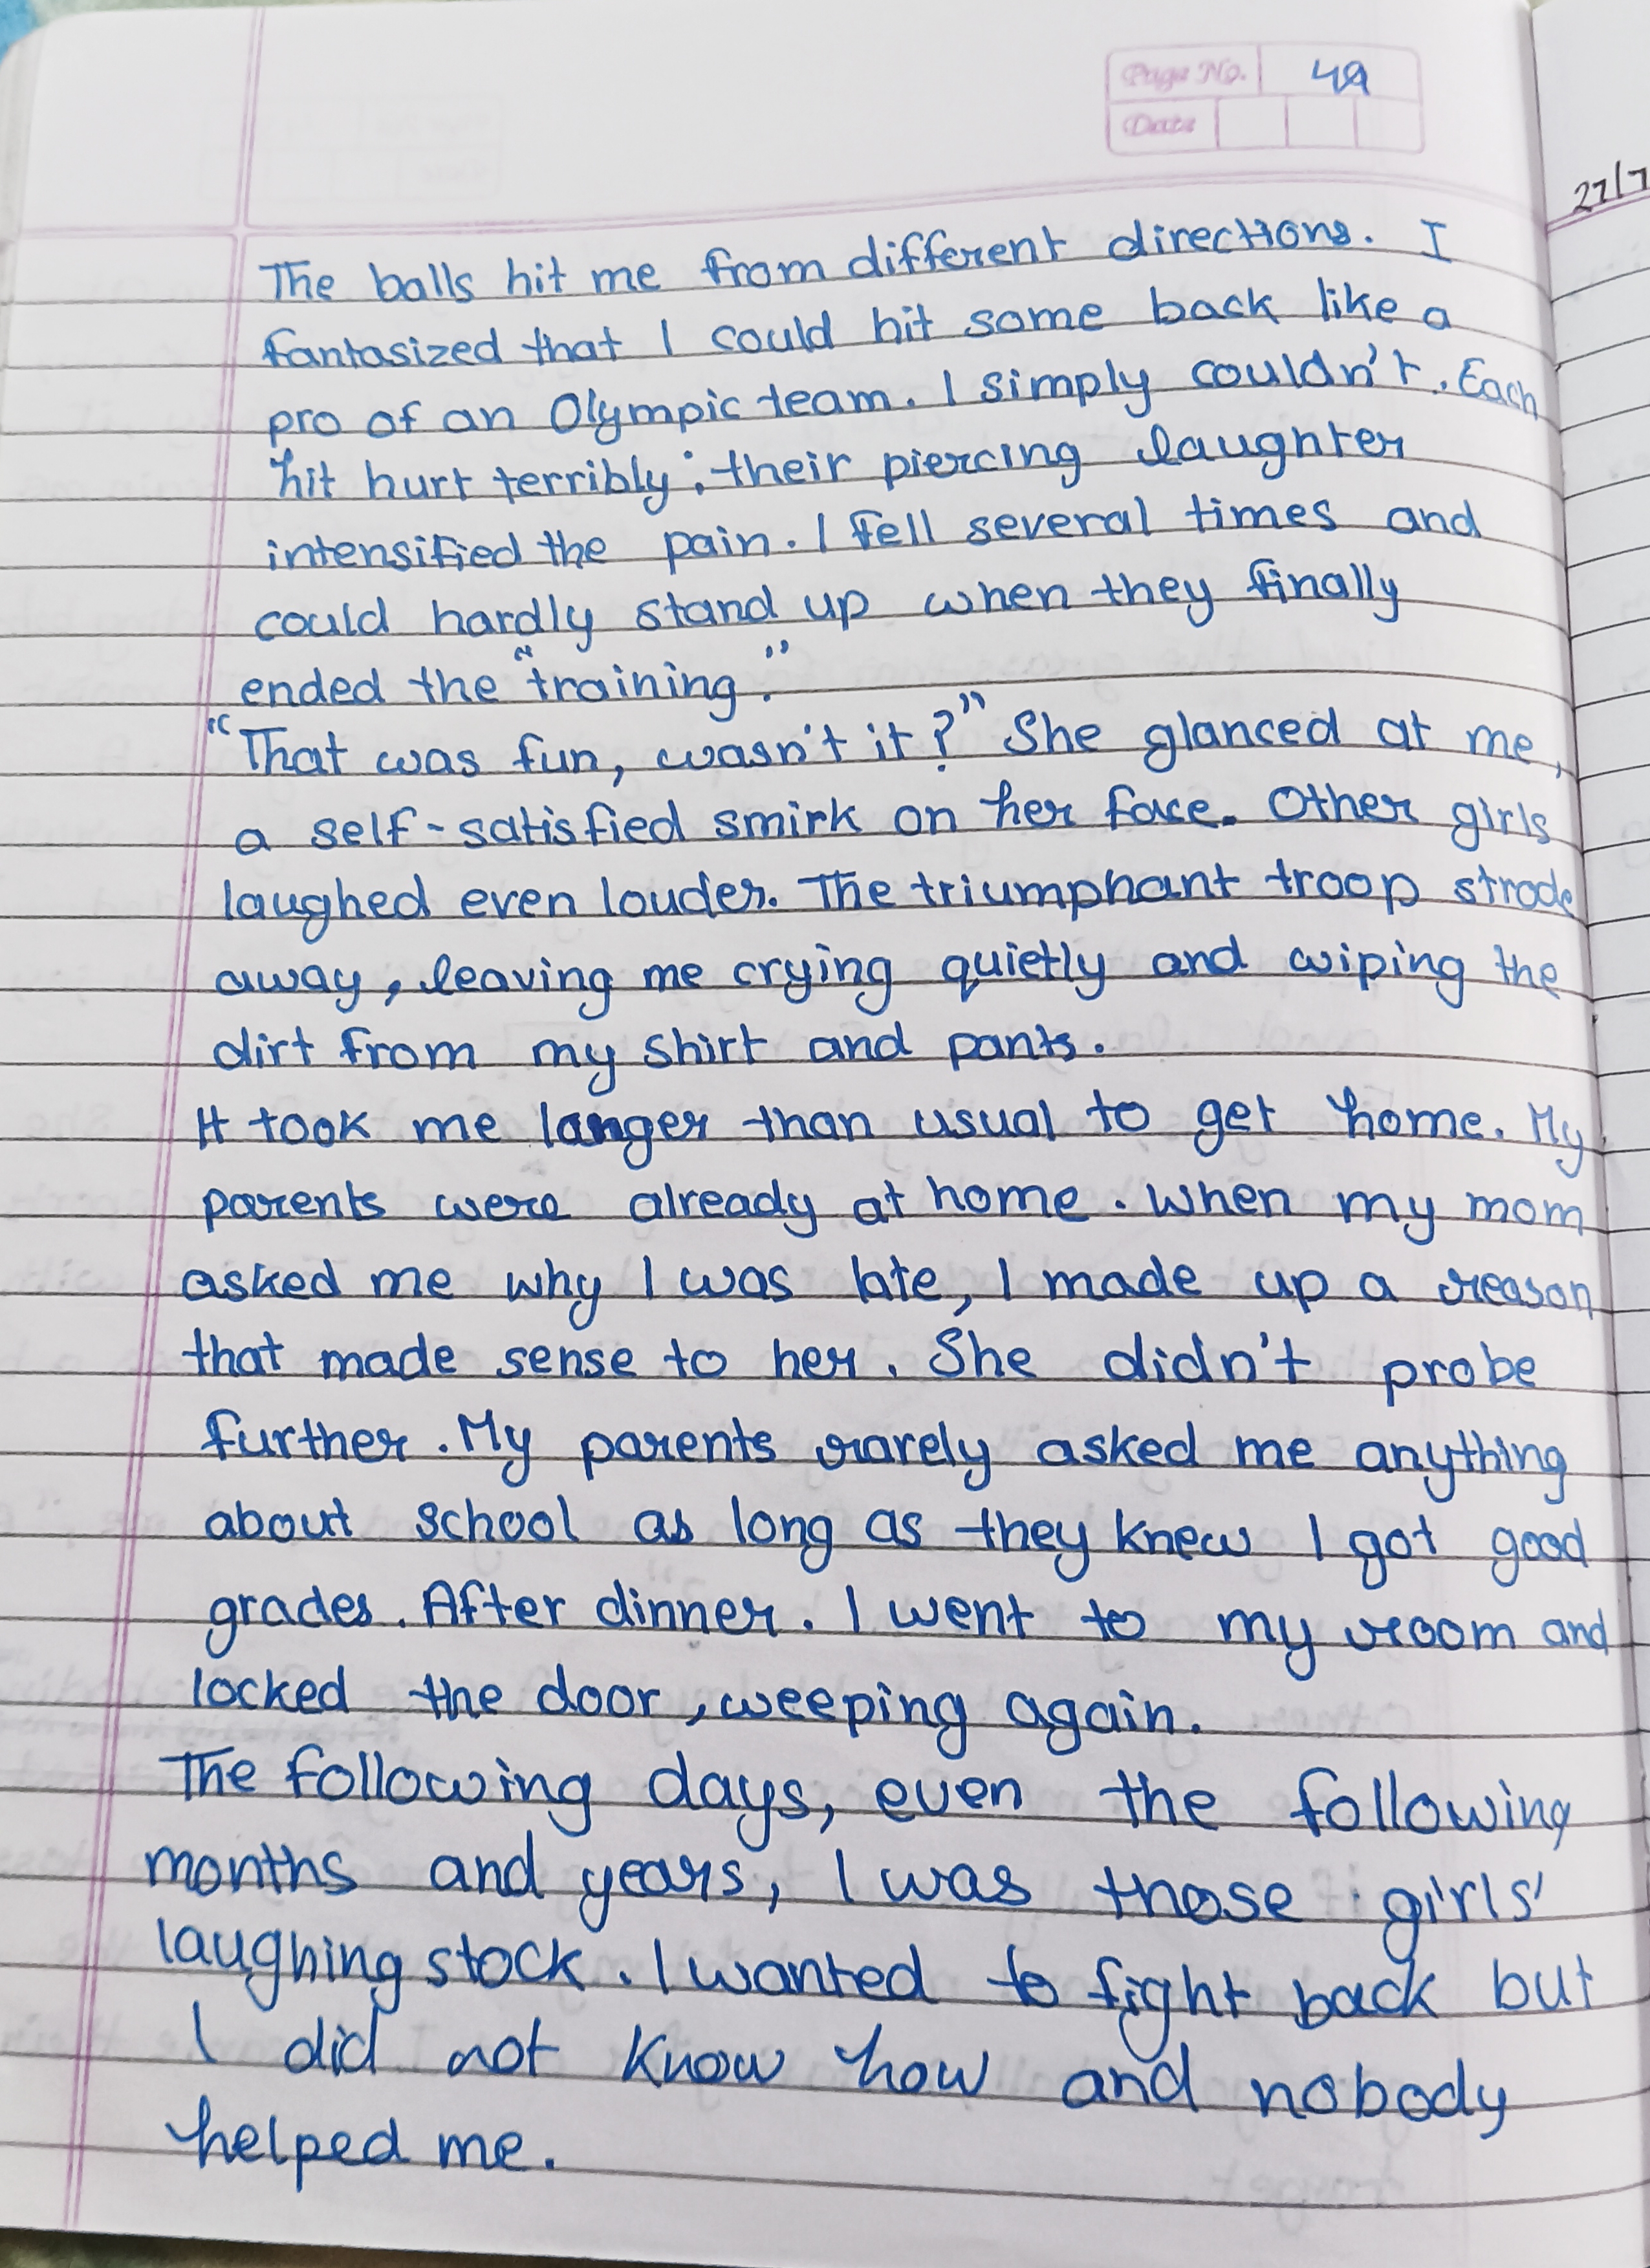 Page No. 49
Date
27/7
The balls hit me from different directions. I
fantasized that I could hit some back like a
pro of an Olympic team. I simply couldn't. Each
hit hurt terribly; their piercing laughter
intensified the pain. I fell several times and
could hardly stand up when they finally
ended the "training."
"That was fun, wasn't it?" She glanced at me,
a self-satisfied smirk on her face. Other girls
laughed even louder. The triumphant troop strode
away, leaving me crying quietly and wiping the
dirt from my shirt and pants.
It took me longer than usual to get home. My
parents were already at home. When my mom
asked me why I was late, I made up a reason
that made sense to her. She didn't probe
further. My parents rarely asked me anything
about school as long as they knew I got good
grades. After dinner. I went to my room and
locked the door, weeping again.
The following days, even the following
months and years, I was those girls'
laughing stock. I wanted to fight back but
I did not know how and nobody
helped me.